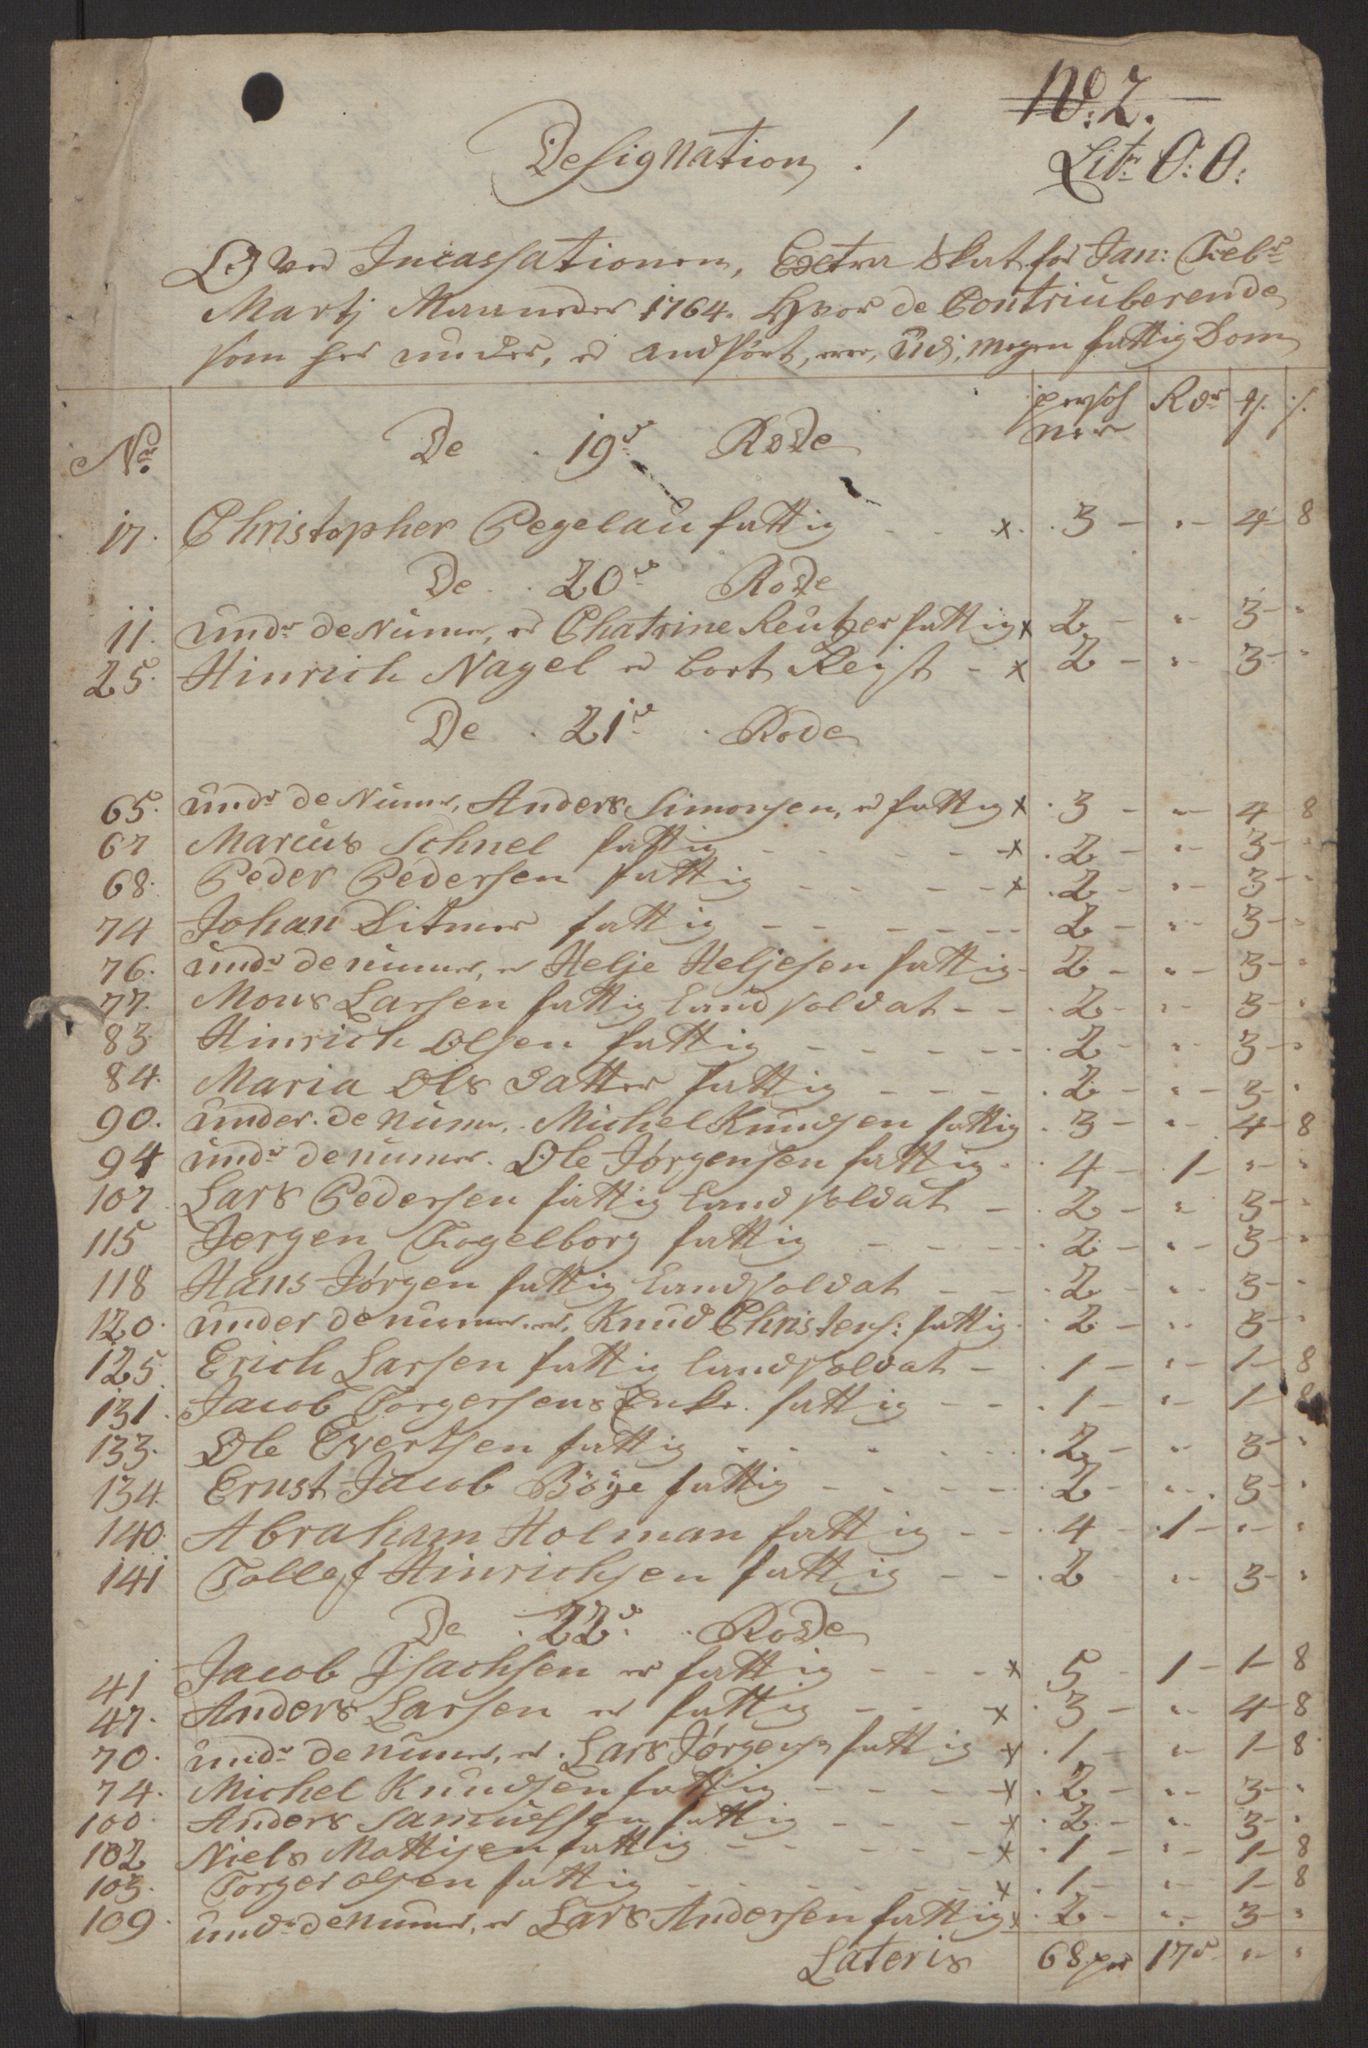 No: 2.
Litr: O: O:
Designation !
Over Incassationen, Extra Skat for Jan: Febr
Martj Maaneder 1764. Hvor de Contriuberende
som her under, er andført, ere, udj, megen fattig Dom
Nr. persohner Rdr
De 19de Rode
17. Christopher Pegelau fattig - - x. 3 - " - 4 - 8
De 20de Rode
11. undr de Numer, er Chatrine Reutzer fattig x 2 - " - 3 - "
25. Hinrich Nagel er bort Reist - x 2 - " - 3 - "
De 21de Rode
65. undr de Numer, Anders Simonsen, er fattig x 3 - " - 4 - 8
67 Marcus Schnel fattig - - - x 2 - " - 3 - "
68. Peder Pedersen fattig - - - x 2 - " - 3 - "
74 Johan Ditmer fattig - - - 2 - " - 3 - "
76. undr de numer, er Helje Heljesen fattig - 2 - " - 3 - "
77. Mons Larsen fattig Land soldat - - 2 - " - 3 - "
83. Hinrich Olsen fattig - - - 2 - " - 3 - "
84. Maria Ols Datter fattig - - - 2 - " - 3 - "
90. under de numer, Michel Knudsen fattig 3 - " - 4 - 8
94 undr de numer. Ole Jørgensen fattig 4 - 1 - " - "
107 Lars Pedersen fattig Land soldat - 2 - " - 3 - "
115 Jergen Fogelborg fattig - - - 2 - " - 3 - "
118 Hans Jørgen fattig Landsoldat - - 2 - " - 3 - "
120. under de numer er, Knud Christens: fattig 2 - " - 3 - "
125. Erich Larsen fattig Landsoldat - 1 - " - 1 - 8
131. Jacob Torgersens Enke. fattig - - 1 - " - 1 - 8
133. Ole Evertsen fattig - - - 2 - " - 3 - "
134. Ernst Jacob Böÿe fattig - - - 2 - " - 3 - "
140. Abraham Holman fattig - - 4 - 1 - " - "
141 Tollef Hinrichsen fattig - - 2 " - 3 - "
De 22de Rode
41 Jacob Isachsen er fattig - - x 5 - 1 - 1 - 8
47. Anders Larsen er fattig - - x 3 - " - 4 - 8
70. undr de numer, er Lars Jørgens fattig x 1 - " - 1 - 8
74. Michel Knudsen fattig - - - x 2 - " - 3 - "
100. Anders Samuelsen fattig - - - x 2 - " - 3 - "
102 Niels Mattisen fattig - - - x 1 - " - 1 - 8
103. Torger Olsen fattig - - - x 1 - " - 1 - 8
109. undr de numer, er Lars Andersen fattig x 2 - " - 3 - "
Lateris 68 per 17 " "